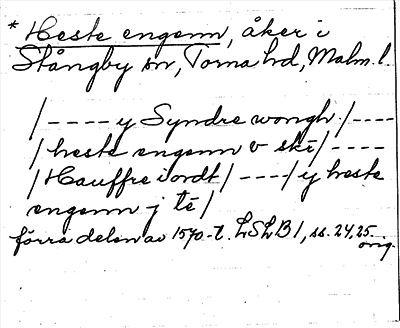 * Heste engenn, åker i
Stångby sn, Torna hd, Malm. l.
/---- y Syndre wongh /----
/ heste engenn v skē /----
/ Hauffre iordt / ---- / y heste
engenn j tē /
förra delen av 1570-t. LSLB 1, ss. 24, 25.
orig.